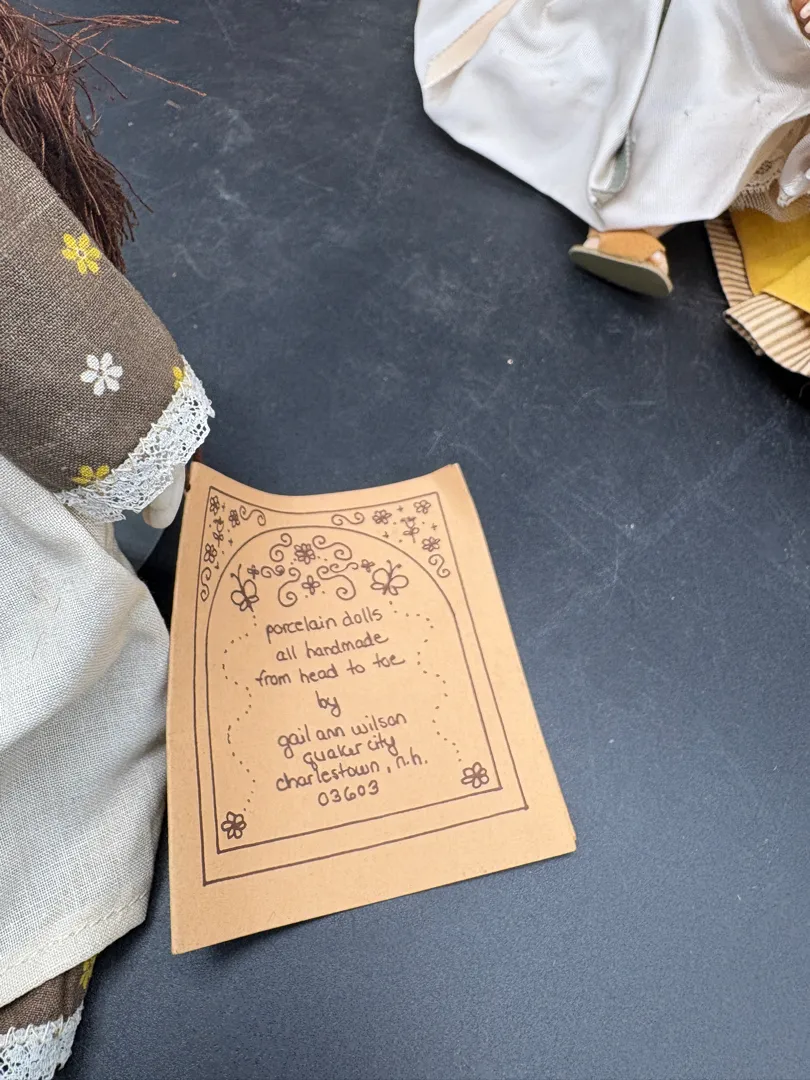 porcelain dolls
all handmade
from head to toe
by
gail ann wilson
quaker city
charlestown, n.h.
03603